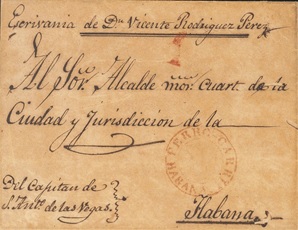 Escrivania de Dn Vicente Rodriguez Perez
Al Sor. Alcalde mor. Cuart. de la
Ciudad y Jurisdiccion de la
Habana.
Del Capitan de
S. Anto. de las Vegas.
HABANA